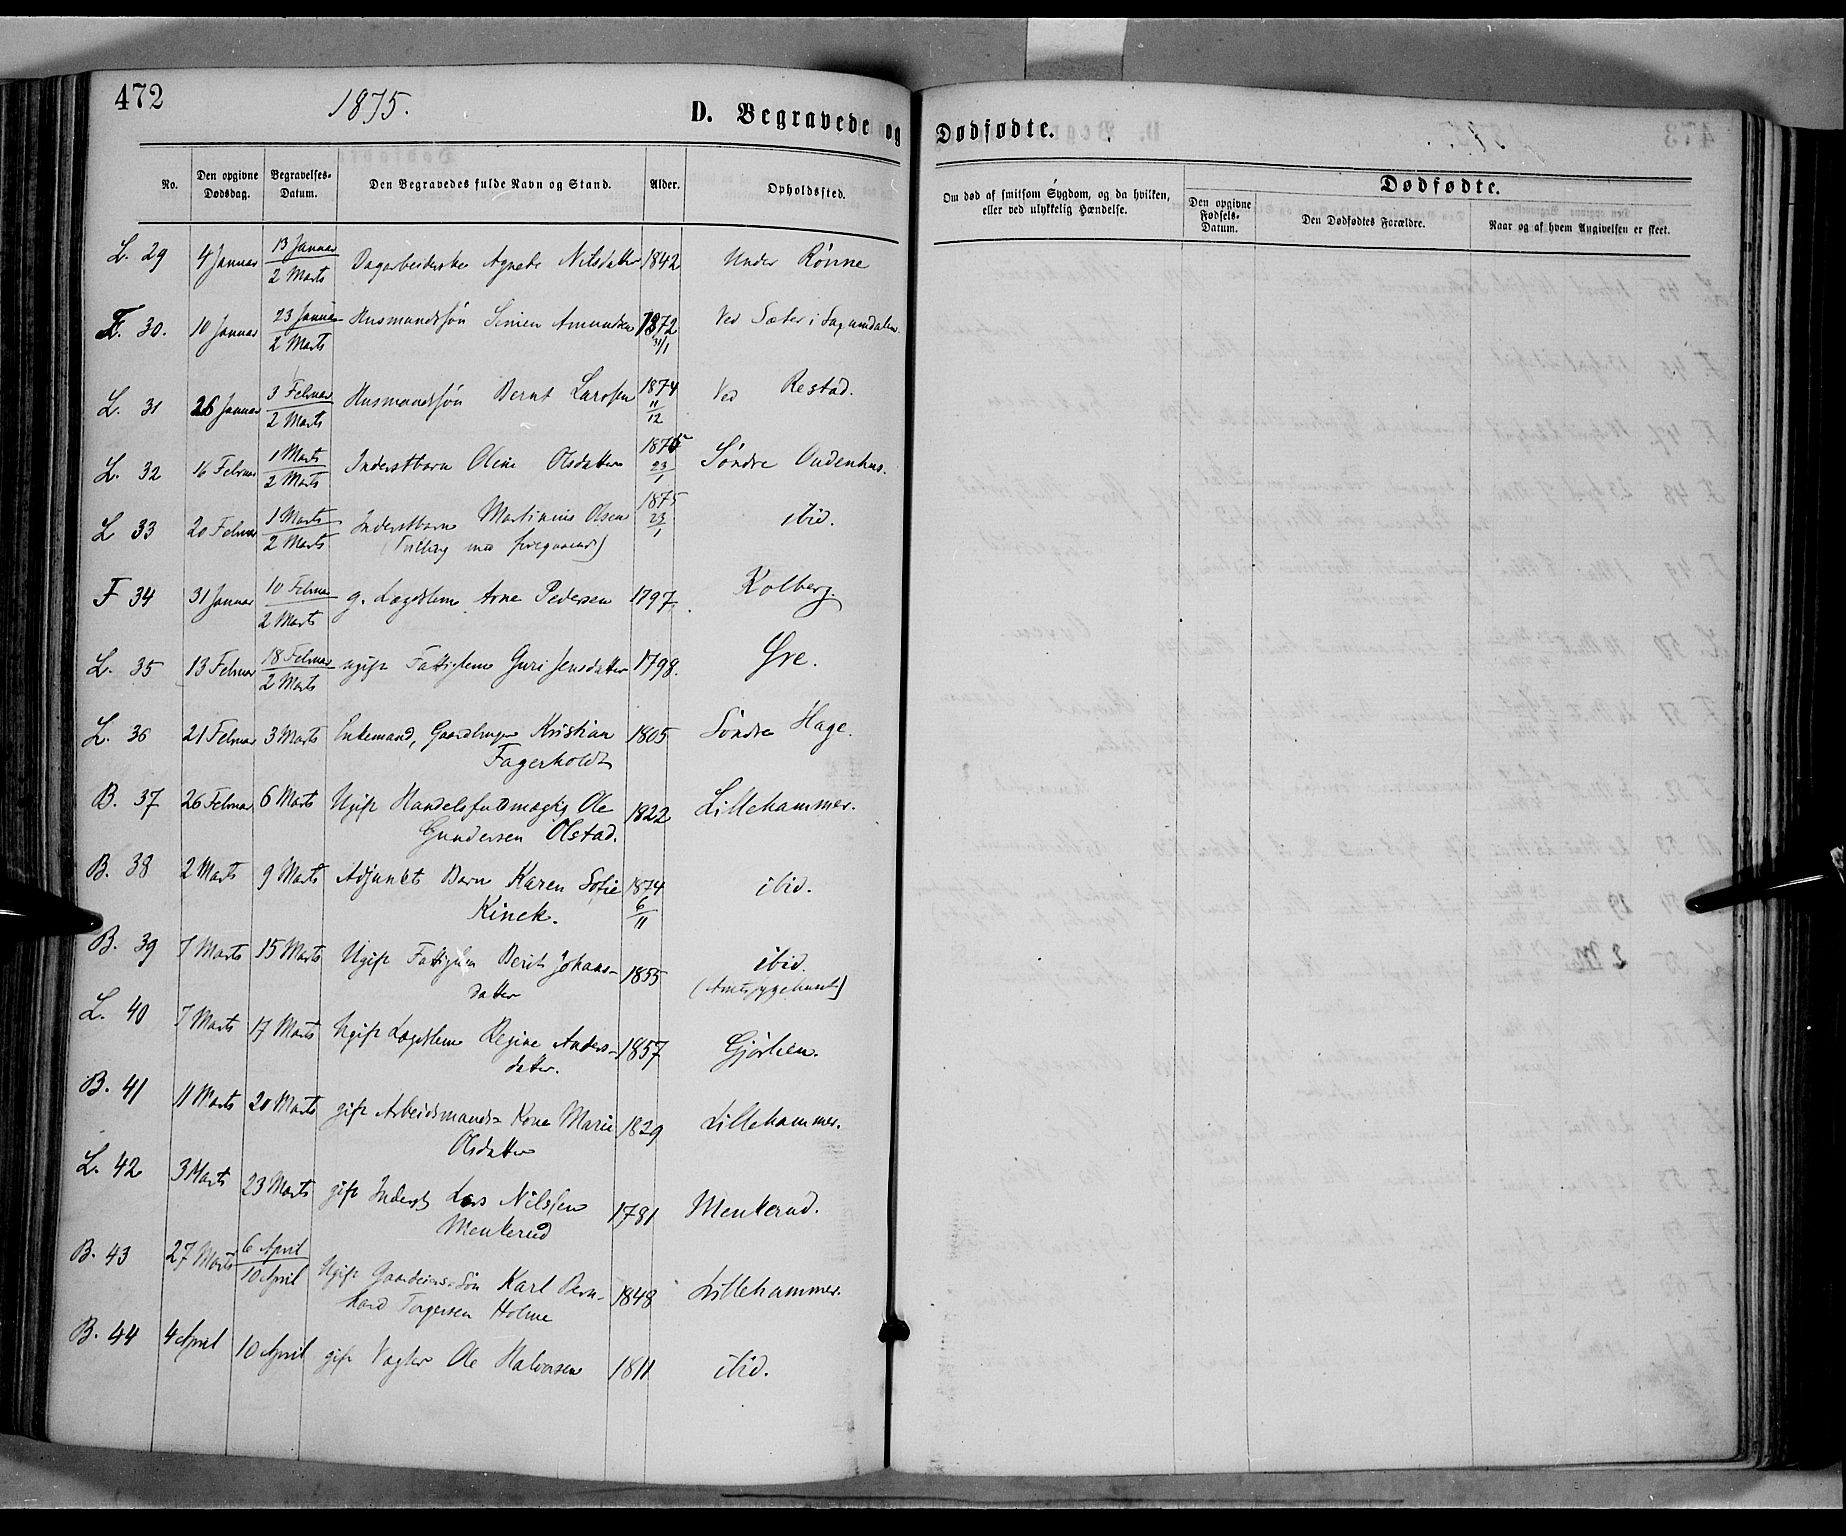 472
1875.
D. Begravede og Dødfødte.
No.
Den opgivne Dødsdag.
Begravelses-Datum.
Den Begravedes fulde Navn og Stand.
Alder.
Opholdssted.
Om død af smitsom Sygdom, og da hvilken, eller ved ulykkelig Hændelse.
Dødfødte.
Den opgivne Fødsels-Datum.
Den Dødfødtes Forældre.
Naar og af hvem Angivelsen er skeet.
L. 29 4 Januar 13 Januar 2 Marts Dagarbeiderske Agnete Nilsdatter 1842 Under Rønne
F. 30. 10 Januar 23 Januar 2 Marts Husmandssøn Simen Amundsen 1872 31/1 Ved Sæter i
L. 31 26 Januar 3 Februar 2 Marts Husmandssøn Bernt Larssen 1874 11/12 Ved Restad.
L. 32 16 Februar 1 Marts 2 Marts Inderstbarn Oline Olsdatter 1875 23/1 Søndre Oudenhus.
L 33 20 Februar 1 Marts 2 Marts Inderstbarn Martinius Olsen 1875 23/1 ibid.
(Tvilling med foregaaende)
F 34 31 Januar 10 Februar 2 Marts g. Lægdslem Arne Pedersen 1797. Kolberg.
L. 35 13 Februar 18 Februar 2 Marts ugift Fattiglem Guri Jensdatter 1798. Øre.
L. 36 21 Februar 3 Marts Enkemand, Gaardbruger Kristian 1805 Søndre Hage.
Fagerholdt
B. 37 26 Februar 6 Marts Ugift Handelsfuldmægtig Ole 1822 Lillehammer.
Gundersen Olstad.
B. 38 2 Marts 9 Marts Adjunkts Barn Karen Sofie 1874 6/11 ibid.
Kinck.
B. 39 7 Marts 15 Marts Ugift Fattiglem Berit Johans- 1855 ibid.
datter (Amtssygehuset)
L. 40 7 Marts 17 Marts Ugift Lægdslem Regine Anders- 1857 Gjørlien.
datter.
B. 41 11 Marts 20 Marts gift Arbeidsmands Kone Marie 1829 Lillehammer.
Olsdatter
L. 42 3 Marts 23 Marts gift Inderst Lars Nilssen 1781 Menkerud.
Menkerud
B. 43 27 Marts 6 April 10 April Ugift Gaardeiers Søn Karl Bern- 1848 Lillehammer.
hard Torgersen Holme
B. 44 4 April 10 April gift Vægter Ole Halvorsen 1811 ibid.